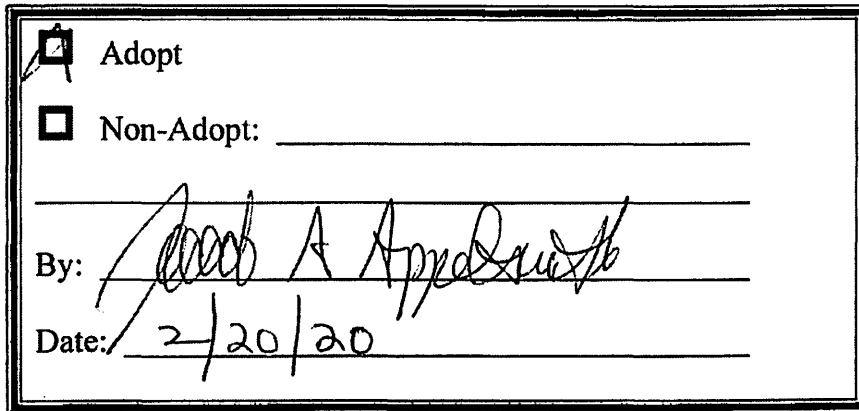 Adopt
Non-Adopt:
By: Jacob A Appelsmith
Date: 2/20/20